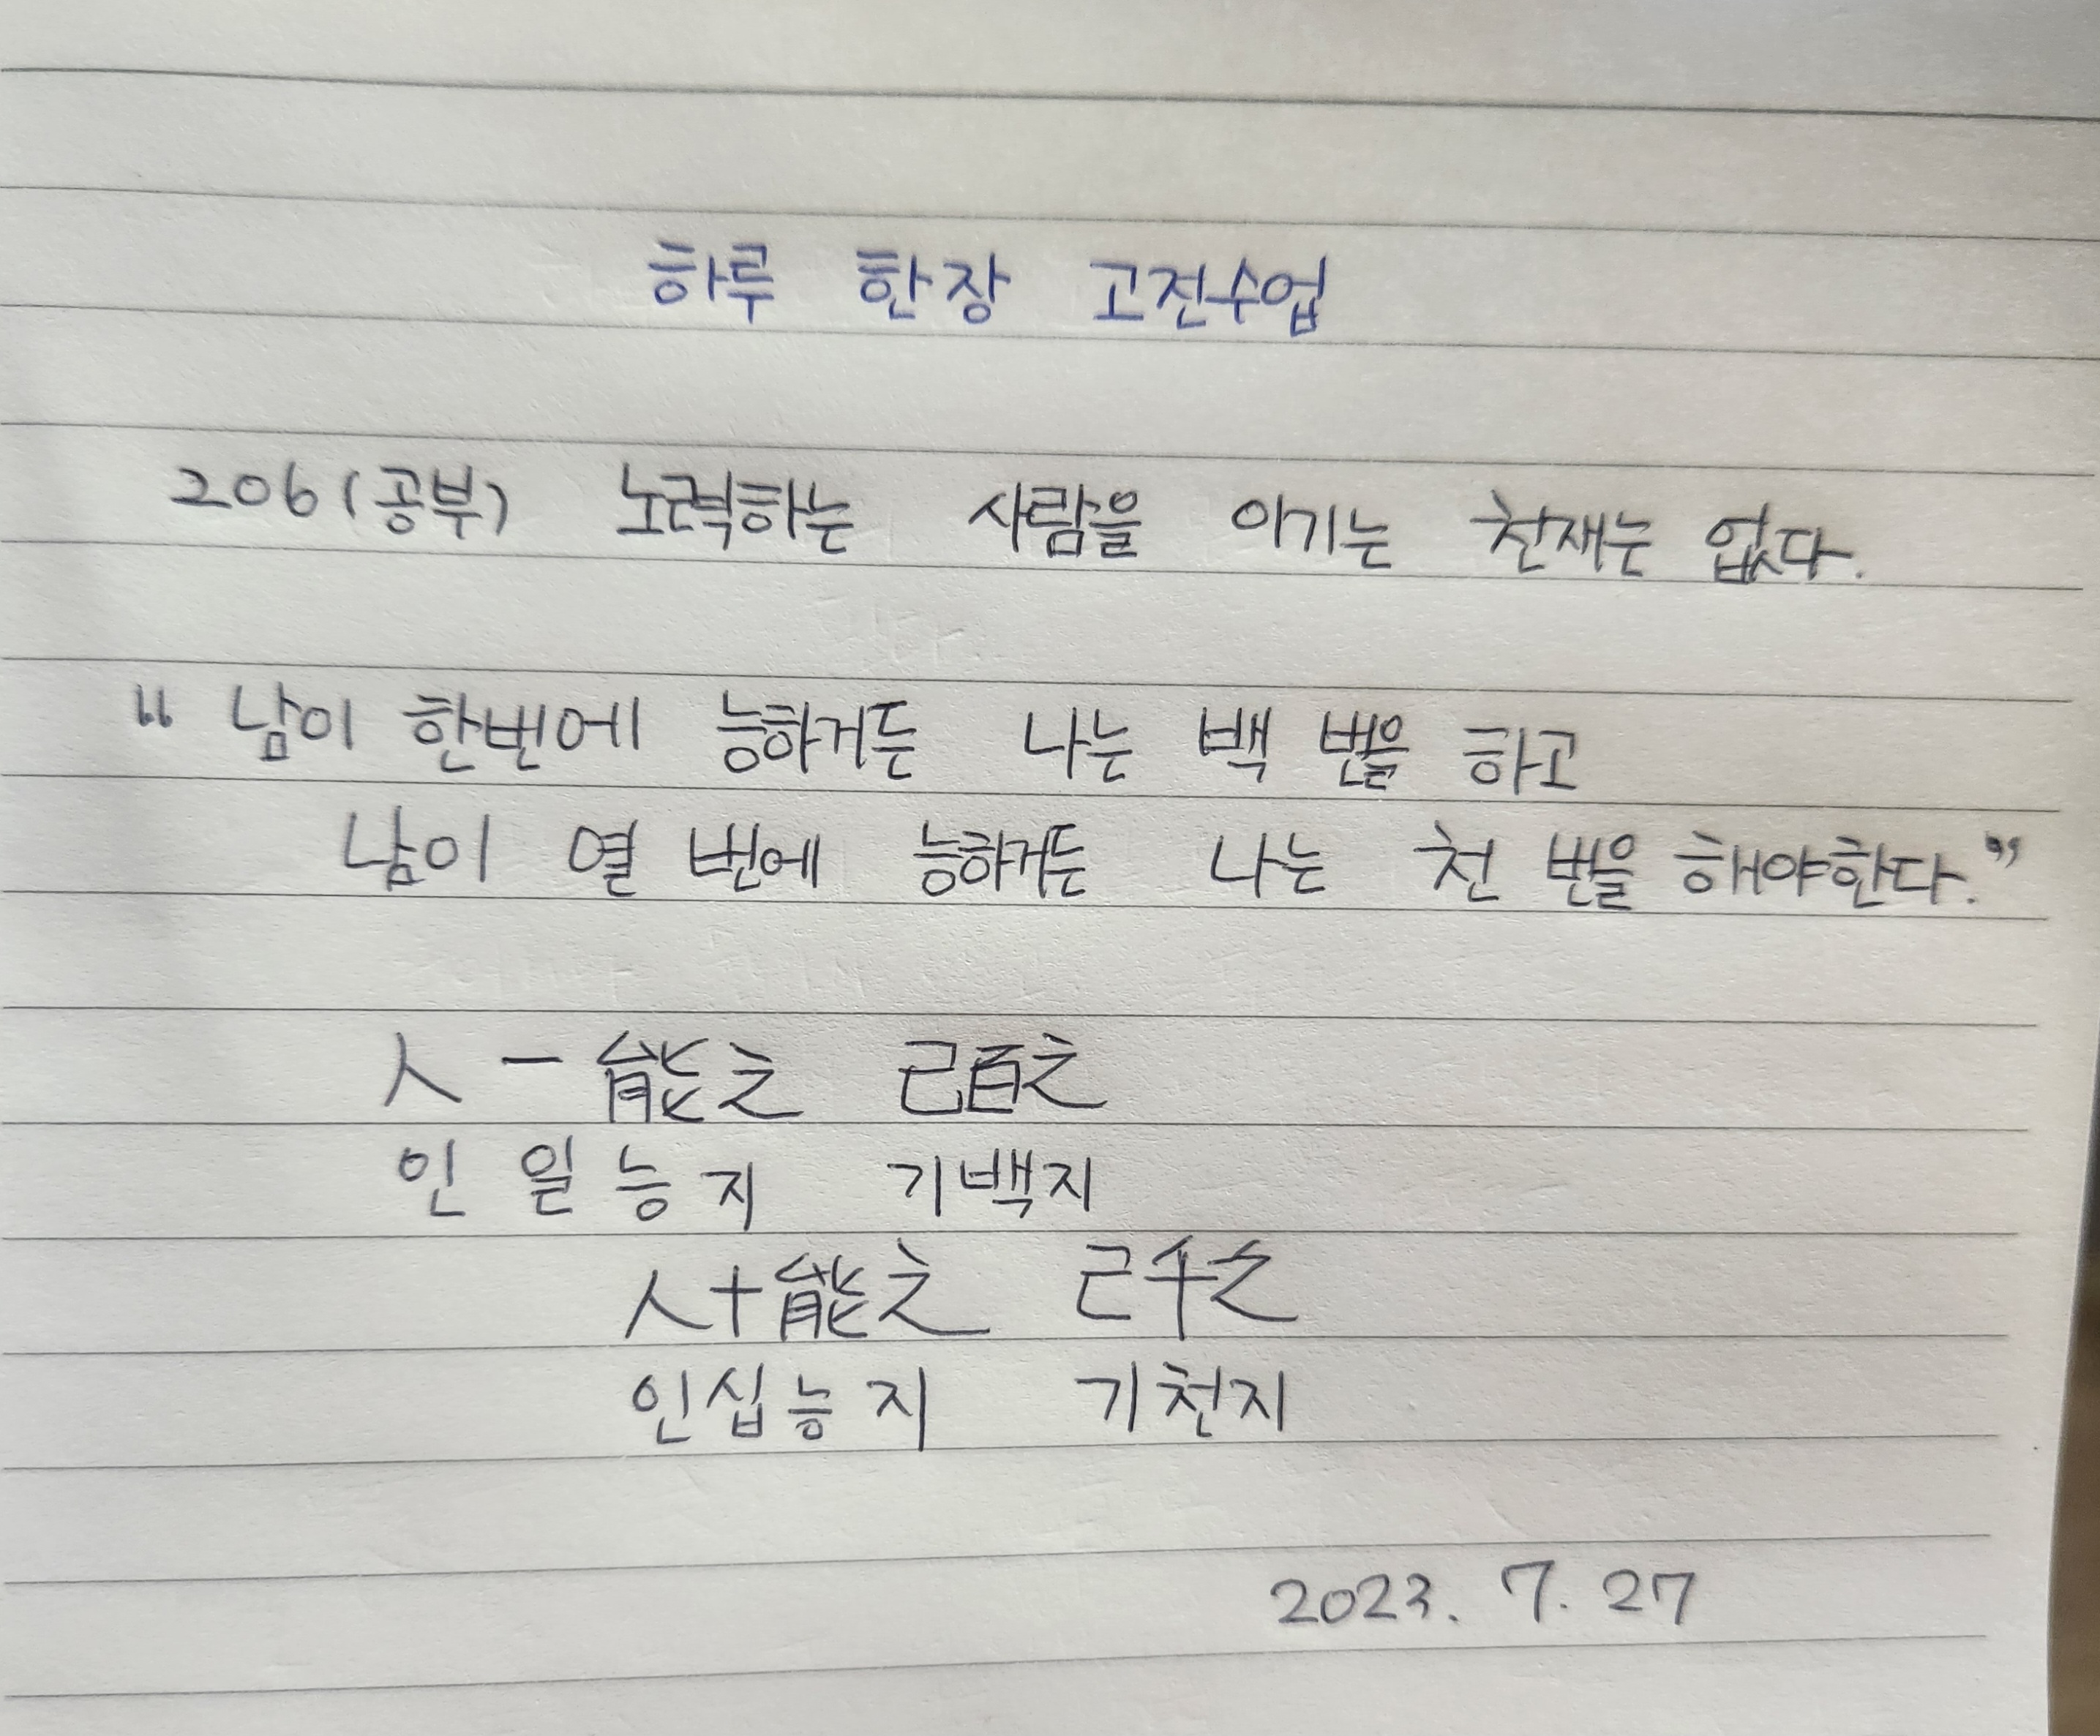 하루 한장 고전수업
206(공부) 노력하는 사람을 이기는 천재는 없다.
“ 남이 한번에 능하거든 나는 백 번을 하고
남이 열 번에 능하거든 나는 천 번을 해야한다.”
人一能之 己百之
인 일 능 지 기백지
人十能之 己千之
인십능지 기천지
2023. 7. 27